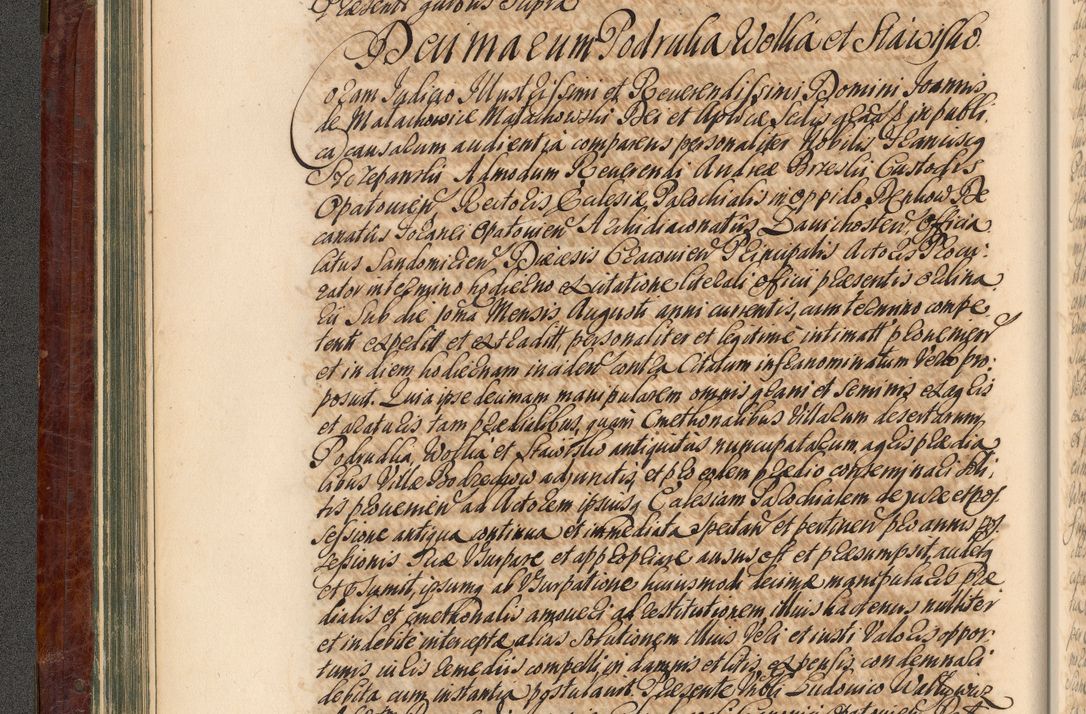 Præsentibus quibus supra
Decimarum Podrudla Wolka et Stawisko
Coram Judicio Illustrissimi et Reverendissimi Domini Joannis
de Małachowice Małachowski Dei et Aplicæ Sedis gratia Eppi in publi
ca causarum audientia comparens personaliter Nobilis Franciscus
Szczepanski Admodum Reverendi Andreæ Brzeski, Custodis
Opatovien Rectoris Ecclesiæ Parochialis in oppido Denkow De
canatus Foranei Opatovien Archidiaconatus Zavichosten, Officia
latus Sandomirien Diæcesis Cracovien Principalis Actoris Procu:
rator in termino hodierno ex citatione literali officii præsentis ordina
rii sub die 10ma Mensis Augusti anni currentis, cum termino compe
tenti expedit et extradit, personaliter et legitime intimatt provenien
et in diem hodiernam inciden contra Citatum infranominatum Verbo pro:
posuit. Quia ipse decimam manipularem omnis grani et seminis ex agris
et araturis tam prædialibus, quam Cmethonalibus Villarum desertarum
Podrudla, Wolka et Stawisko antiquitus nuncupatarum, agris prædia
libus Villæ Bodzechow adjunctis, et pro eodem prædio
tis provenien ad Actorem ipsiusq Eclesiam Parochialem de jure et pos
sessione antiqua continua et immediata spectan et pertinen pro annis pos
sessionis suæ Usurpare et appropriare ausus est et præsumpsit, audetq
et præsumit, ipsumq ab Usurpatione huiusmodi decimæ manipularis præ
dialis et cmethonalis amoveri ad restitutionem illius hactenus nulliter
et indebite interceptæ alias solutionem illius Veri et iusti Valoris oppor
tunis iuris remediis compelli, in damnis et litis expensis condemnari
debita cum instantia postulavit. Præsente Nobili Ludovico